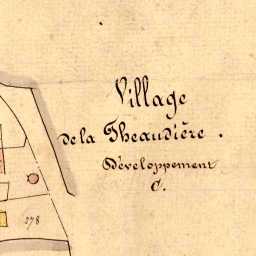 Village
de la Theaudière.
Développement
C.
278